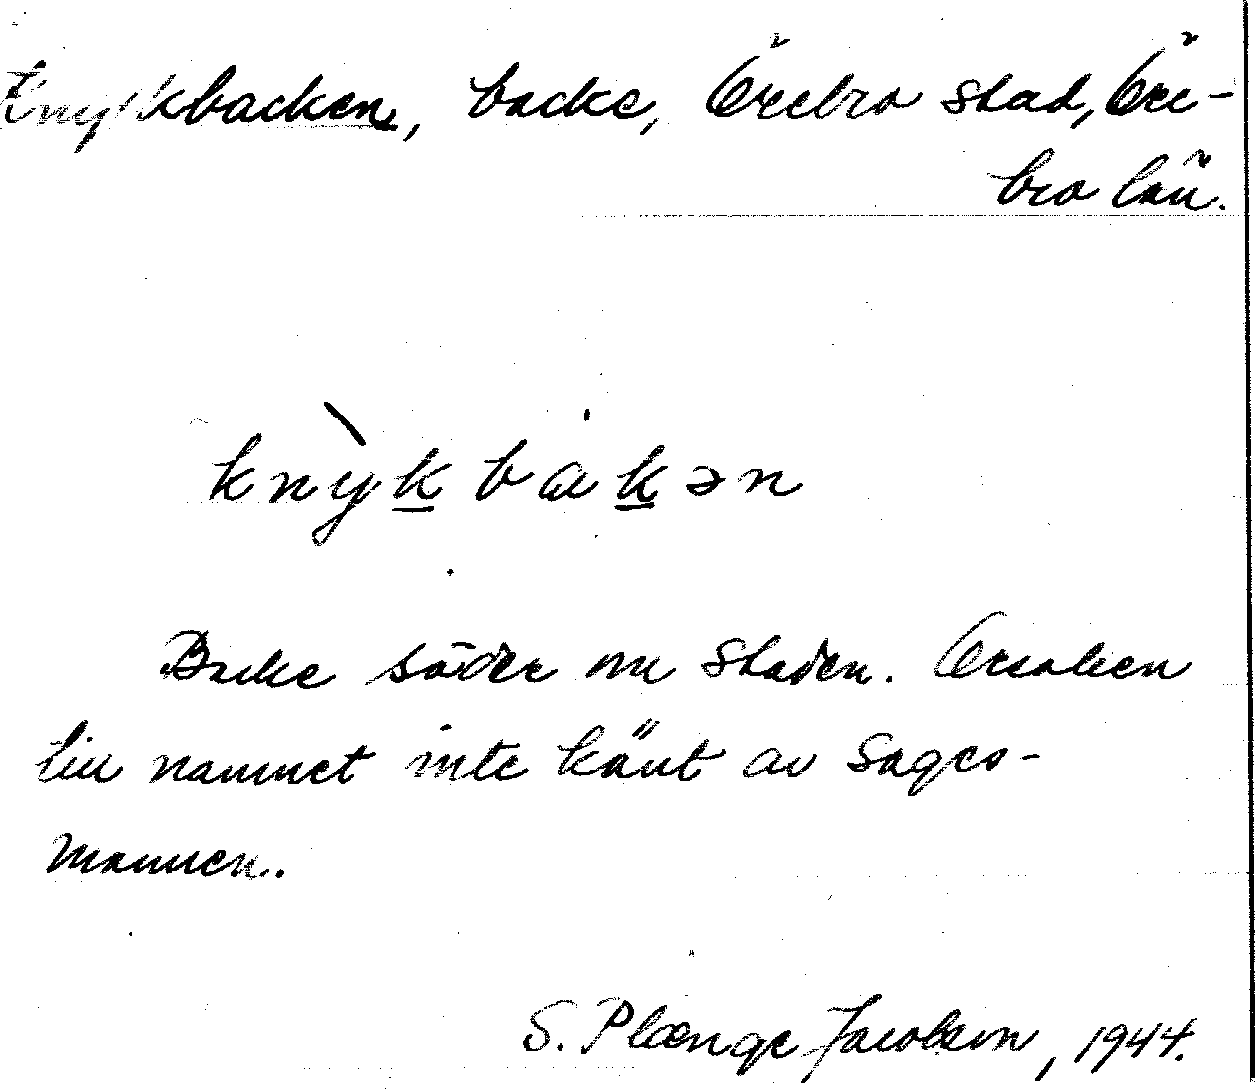 Knykbacken, backe, Örebro stad, Öre-
bro län.
knỳkbakən
Backe söder om staden. Orsaken
till namnet inte känt av sages-
mannen.
S. Plænge Jacobson, 1944.